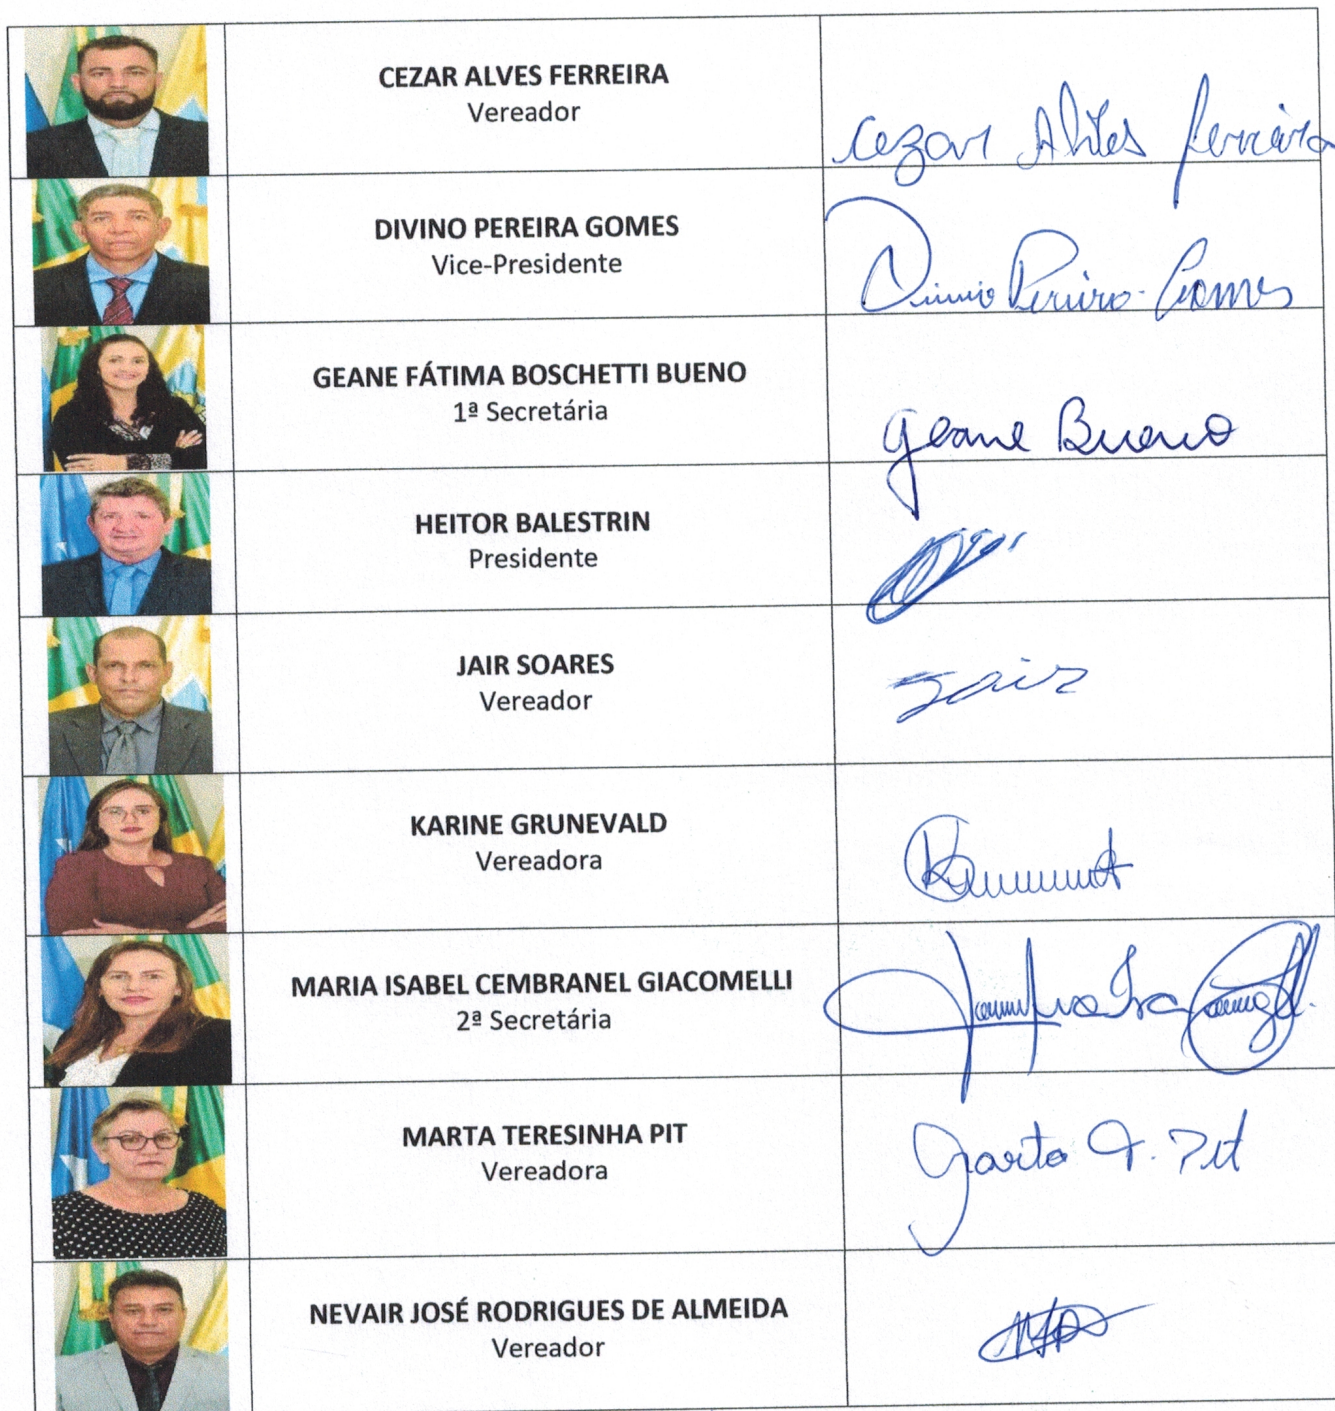 CEZAR ALVES FERREIRA
Vereador
Cezar Alves Ferreira
DIVINO PEREIRA GOMES
Vice-Presidente
Divino Pereira Gomes
GEANE FÁTIMA BOSCHETTI BUENO
1ª Secretária
Geane Bueno
HEITOR BALESTRIN
Presidente
JAIR SOARES
Vereador
Jair
KARINE GRUNEVALD
Vereadora
MARIA ISABEL CEMBRANEL GIACOMELLI
2ª Secretária
MARTA TERESINHA PIT
Vereadora
Marta T. Pit
NEVAIR JOSÉ RODRIGUES DE ALMEIDA
Vereador